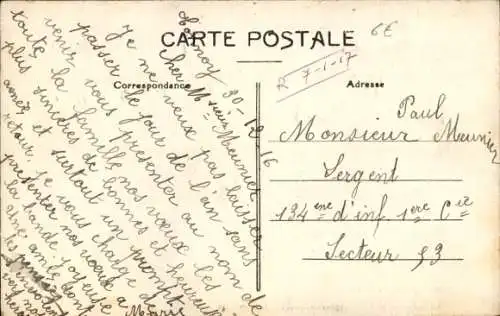 CARTE POSTALE
6€
R 7-1-17
Correspondance
Adresse
30-12-16
Cher Monsieur Meunier
Je ne veux pas laisser
passer le jour de l'an sans
venir vous présenter au nom de
toute la famille nos vœux les
plus sincères de bonne et heureuse
année et surtout un prompt
retour. Je vous charge de
présenter nos vœux à
la bande joyeuse
Paul
Monsieur Meunier
Sergent
134eme d'inf. 1ere Cie
Secteur 53